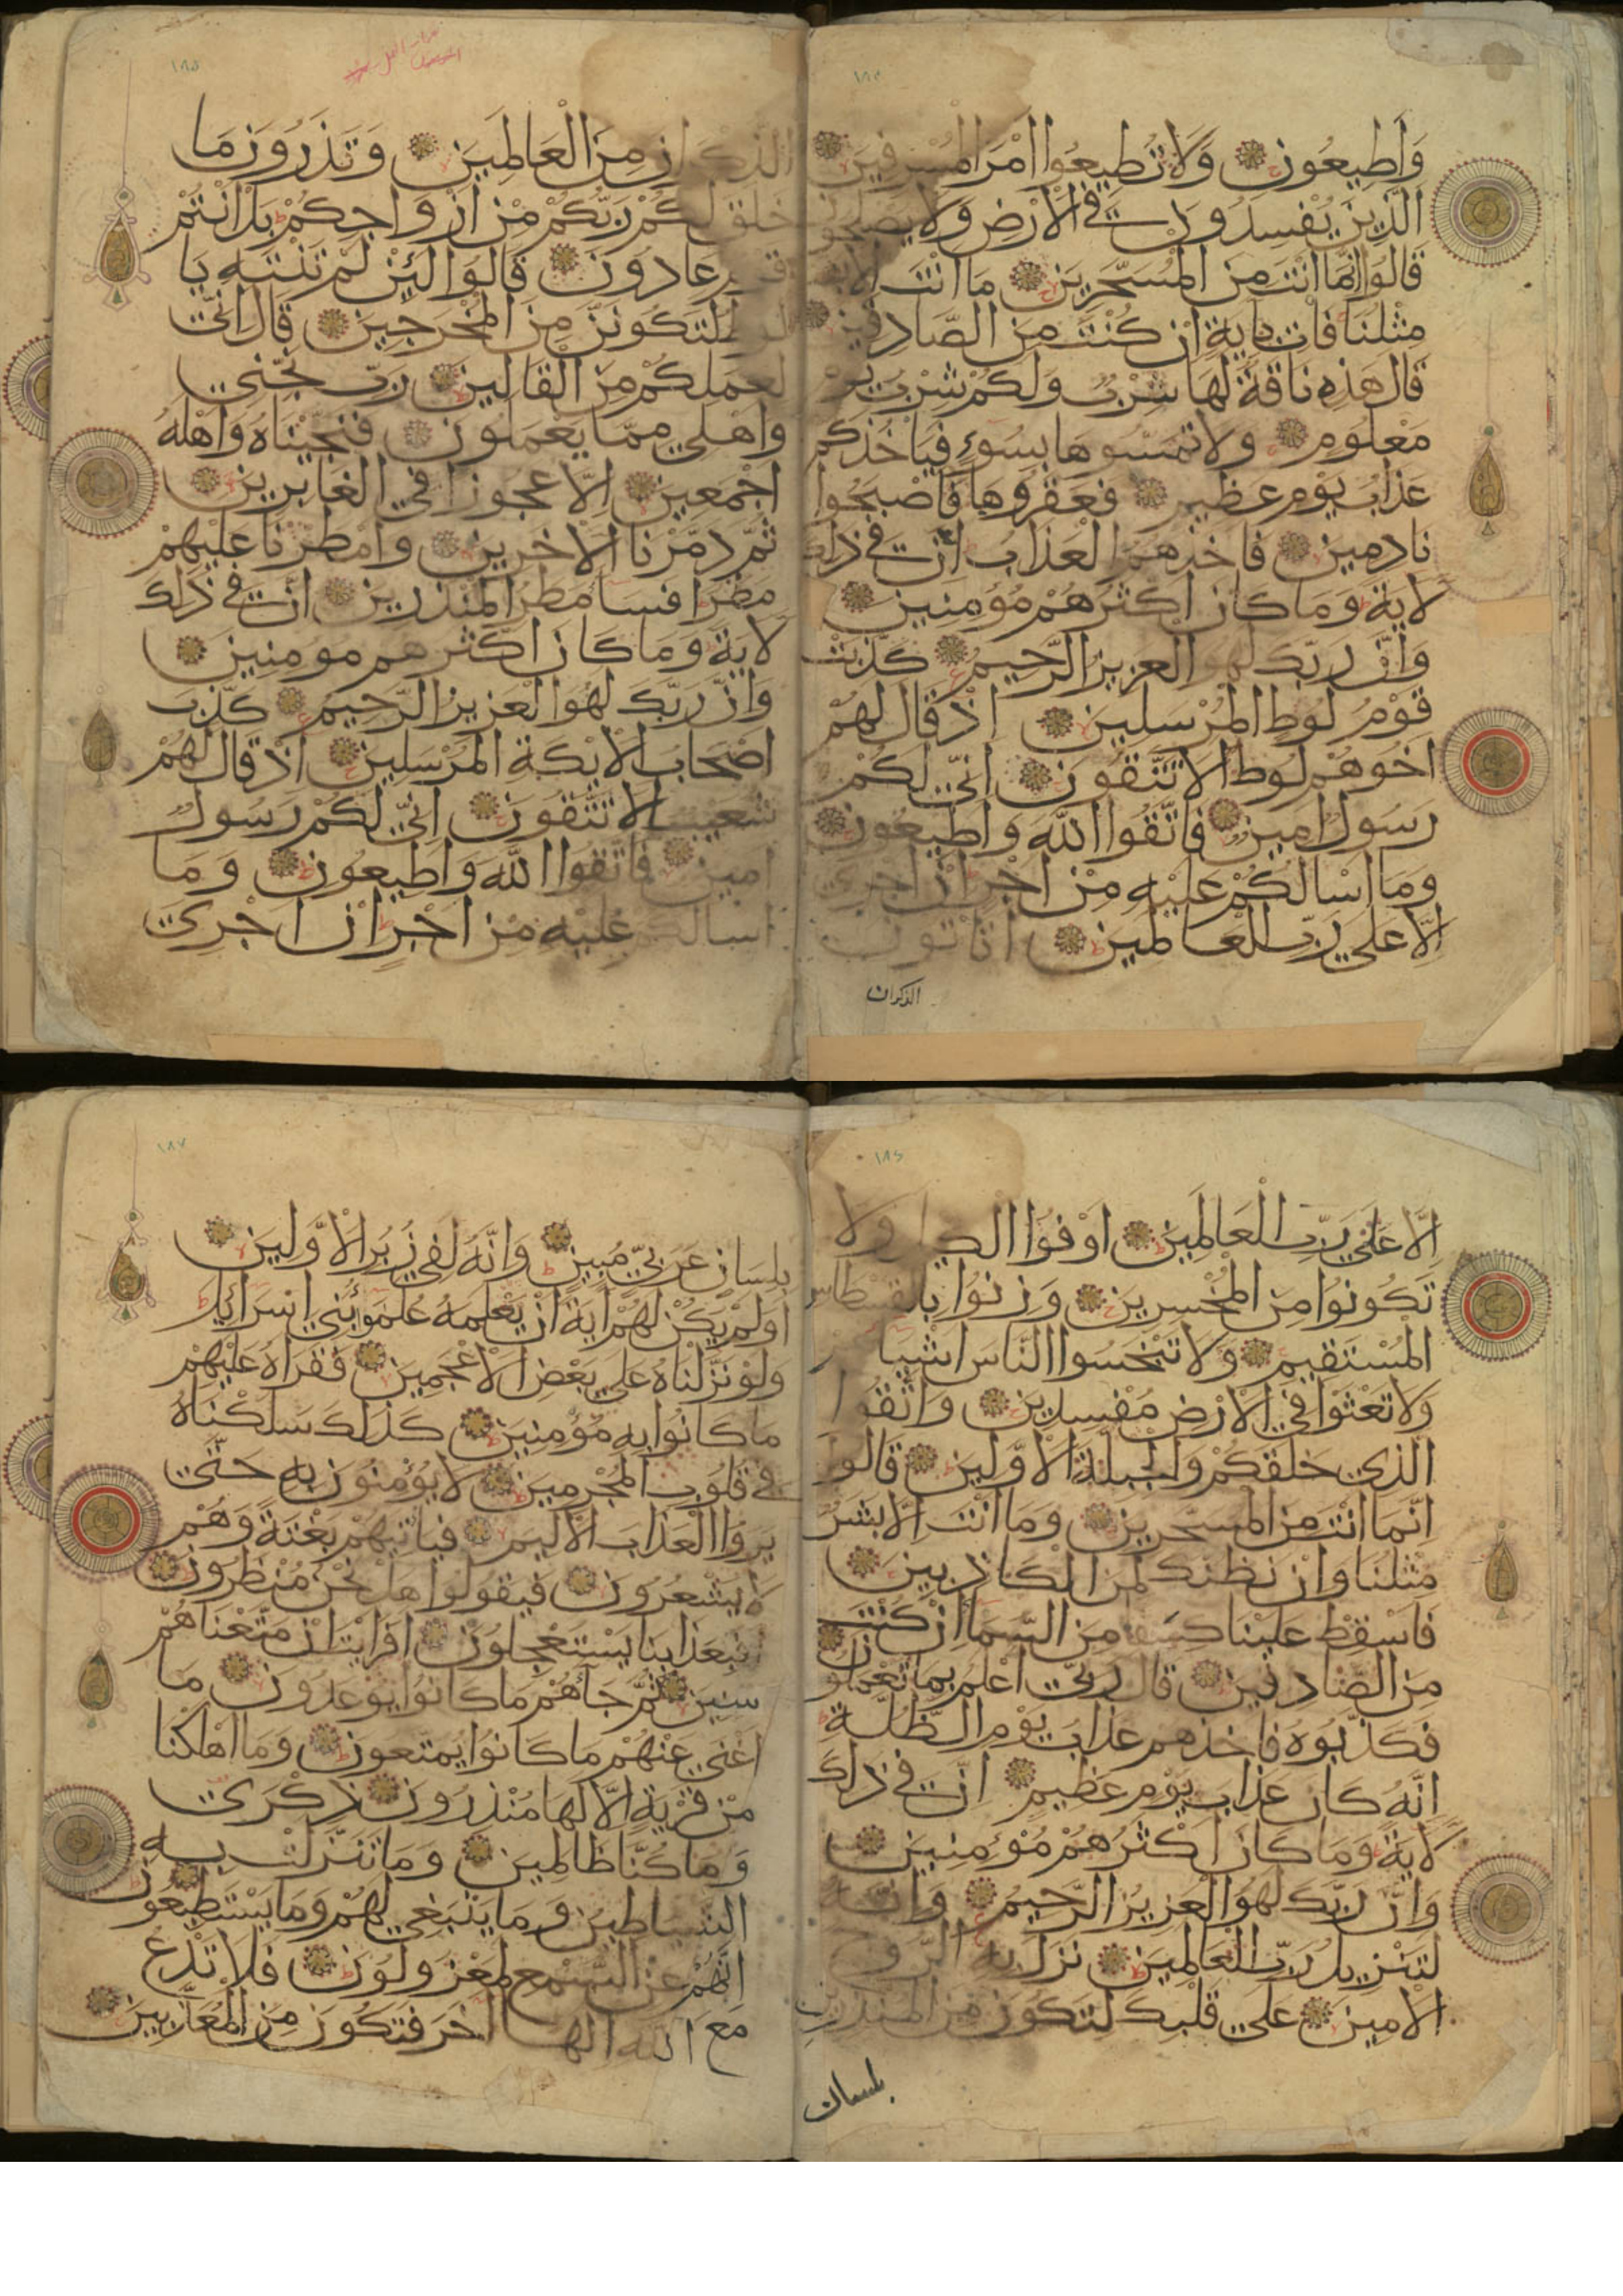 ١٨٤
وَاَطِيعُونِ وَلَا تُطِيعُوا اَمْرَ الْمُسْرِفِينَ
الَّذِينَ يُفْسِدُونَ فِي الْاَرْضِ وَلَا يُصْلِحُونَ
قَالُوا اِنَّمَا اَنْتَ مِنَ الْمُسَحَّرِينَ مَا اَنْتَ اِلَّا بَشَرٌ
مِثْلُنَا فَاْتِ بِاٰيَةٍ اِنْ كُنْتَ مِنَ الصَّادِقِينَ
قَالَ هٰذِهِ نَاقَةٌ لَهَا شِرْبٌ وَلَكُمْ شِرْبُ يَوْمٍ
مَعْلُومٍ وَلَا تَمَسُّوهَا بِسُوءٍ فَيَاْخُذَكُمْ
عَذَابُ يَوْمٍ عَظِيمٍ فَعَقَرُوهَا فَاَصْبَحُوا
نَادِمِينَ فَاَخَذَهُمُ الْعَذَابُ اِنَّ فِي ذٰلِكَ
لَاٰيَةً وَمَا كَانَ اَكْثَرُهُمْ مُؤْمِنِينَ
وَاِنَّ رَبَّكَ لَهُوَ الْعَزِيزُ الرَّحِيمُ كَذَّبَتْ
قَوْمُ لُوطٍ الْمُرْسَلِينَ اِذْ قَالَ لَهُمْ
اَخُوهُمْ لُوطٌ اَلَا تَتَّقُونَ اِنِّي لَكُمْ
رَسُولٌ اَمِينٌ فَاتَّقُوا اللّٰهَ وَاَطِيعُونِ
وَمَا اَسْاَلُكُمْ عَلَيْهِ مِنْ اَجْرٍ اِنْ اَجْرِيَ
اِلَّا عَلٰي رَبِّ الْعَالَمِينَ اَتَاْتُونَ
الذكران
١٨٥
الذُّكْرَانَ مِنَ الْعَالَمِينَ وَتَذَرُونَ مَا
خَلَقَ لَكُمْ رَبُّكُمْ مِنْ اَزْوَاجِكُمْ بَلْ اَنْتُمْ
قَوْمٌ عَادُونَ قَالُوا لَئِنْ لَمْ تَنْتَهِ يَا
لُوطُ لَتَكُونَنَّ مِنَ الْمُخْرَجِينَ قَالَ اِنِّي
لِعَمَلِكُمْ مِنَ الْقَالِينَ رَبِّ نَجِّنِي
وَاَهْلِي مِمَّا يَعْمَلُونَ فَنَجَّيْنَاهُ وَاَهْلَهُ
اَجْمَعِينَ اِلَّا عَجُوزًا فِي الْغَابِرِينَ
ثُمَّ دَمَّرْنَا الْاٰخَرِينَ وَاَمْطَرْنَا عَلَيْهِمْ
مَطَرًا فَسَاءَ مَطَرُ الْمُنْذَرِينَ اِنَّ فِي ذٰلِكَ
لَاٰيَةً وَمَا كَانَ اَكْثَرُهُمْ مُومِنِينَ
وَاِنَّ رَبَّكَ لَهُوَ الْعَزِيزُ الرَّحِيمُ كَذَّبَ
اَصْحَابُ الْاَيْكَةِ الْمُرْسَلِينَ اِذْ قَالَ لَهُمْ
شُعَيْبٌ اَلَا تَتَّقُونَ اِنِّي لَكُمْ رَسُولٌ
اَمِينٌ فَاتَّقُوا اللّٰهَ وَاَطِيعُونِ وَمَا
اَسْاَلُكُمْ عَلَيْهِ مِنْ اَجْرٍ اِنْ اَجْرِيَ
١٨٦
اِلَّا عَلٰي رَبِّ الْعَالَمِينَ اَوْفُوا الْكَيْلَ وَلَا
تَكُونُوا مِنَ الْمُخْسِرِينَ وَزِنُوا بِالْقِسْطَاسِ
الْمُسْتَقِيمِ وَلَا تَبْخَسُوا النَّاسَ اَشْيَاءَهُمْ
وَلَا تَعْثَوْا فِي الْاَرْضِ مُفْسِدِينَ وَاتَّقُوا
الَّذِي خَلَقَكُمْ وَالْجِبِلَّةَ الْاَوَّلِينَ قَالُوا
اِنَّمَا اَنْتَ مِنَ الْمُسَحَّرِينَ وَمَا اَنْتَ اِلَّا بَشَرٌ
مِثْلُنَا وَاِنْ نَظُنُّكَ لَمِنَ الْكَاذِبِينَ
فَاَسْقِطْ عَلَيْنَا كِسَفًا مِنَ السَّمَاءِ اِنْ كُنْتَ
مِنَ الصَّادِقِينَ قَالَ رَبِّي اَعْلَمُ بِمَا تَعْمَلُونَ
فَكَذَّبُوهُ فَاَخَذَهُمْ عَذَابُ يَوْمِ الظُّلَّةِ
اِنَّهُ كَانَ عَذَابَ يَوْمٍ عَظِيمٍ اِنَّ فِي ذٰلِكَ
لَاٰيَةً وَمَا كَانَ اَكْثَرُهُمْ مُؤْمِنِينَ
وَاِنَّ رَبَّكَ لَهُوَ الْعَزِيزُ الرَّحِيمُ وَاِنَّهُ
لَتَنْزِيلُ رَبِّ الْعَالَمِينَ نَزَلَ بِهِ الرُّوحُ
الْاَمِينُ عَلٰي قَلْبِكَ لِتَكُونَ مِنَ الْمُنْذِرِينَ
بلسان
١٨٧
بِلِسَانٍ عَرَبِيٍّ مُبِينٍ وَاِنَّهُ لَفِي زُبُرِ الْاَوَّلِينَ
اَوَلَمْ يَكُنْ لَهُمْ اٰيَةً اَنْ يَعْلَمَهُ عُلَمٰؤُا بَنِي اِسْرَائِلَ
وَلَوْ نَزَّلْنَاهُ عَلٰي بَعْضِ الْاَعْجَمِينَ فَقَرَاَهُ عَلَيْهِمْ
مَا كَانُوا بِهِ مُؤْمِنِينَ كَذٰلِكَ سَلَكْنَاهُ
فِي قُلُوبِ الْمُجْرِمِينَ لَا يُؤْمِنُونَ بِهِ حَتّٰي
يَرَوُا الْعَذَابَ الْاَلِيمَ فَيَاْتِيَهُمْ بَغْتَةً وَهُمْ
لَا يَشْعُرُونَ فَيَقُولُوا هَلْ نَحْنُ مُنْظَرُونَ
اَفَبِعَذَابِنَا يَسْتَعْجِلُونَ اَفَرَاَيْتَ اِنْ مَتَّعْنَاهُمْ
سِنِينَ ثُمَّ جَآءَهُمْ مَا كَانُوا يُوعَدُونَ مَا
اَغْنٰي عَنْهُمْ مَا كَانُوا يُمَتَّعُونَ وَمَا اَهْلَكْنَا
مِنْ قَرْيَةٍ اِلَّا لَهَا مُنْذِرُونَ ذِكْرٰي
وَمَا كُنَّا ظَالِمِينَ وَمَا تَنَزَّلَتْ بِهِ
الشَّيَاطِينُ وَمَا يَنْبَغِي لَهُمْ وَمَا يَسْتَطِيعُونَ
اِنَّهُمْ عَنِ السَّمْعِ لَمَعْزُولُونَ فَلَا تَدْعُ
مَعَ اللّٰهِ اِلٰهًا اٰخَرَ فَتَكُونَ مِنَ الْمُعَذَّبِينَ